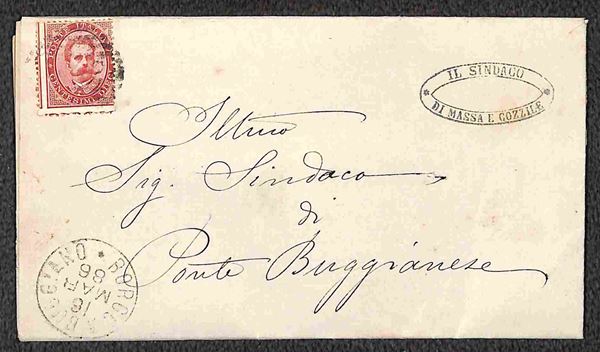 POSTE ITALIANE
CENTESIMI VENTI
IL SINDACO
DI MASSA E COZZILE
Illmo
Sig. Sindaco
di
Ponte Buggianese
BORGO A BUGGIANO
16
MAR
86